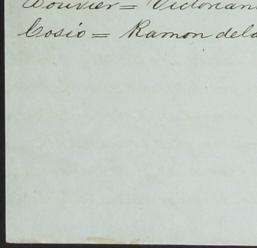 Bouvier = Victorian
Cosio = Ramon dela